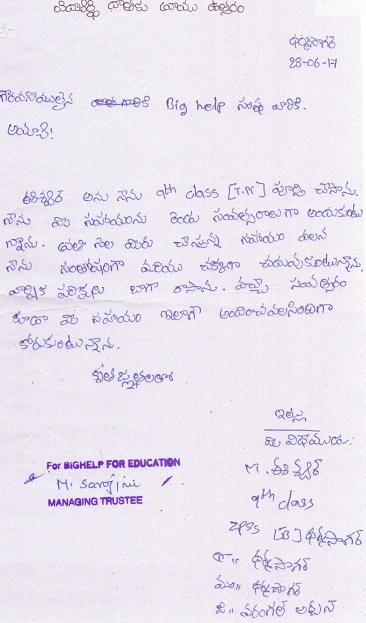 విద్యార్థి దాతకు వ్రాయు ఉత్తరం
ధర్మసాగర్
28-06-17
గౌరవనీయులైన Big help సంస్థ వారికి.
అయ్యా!
ఈశ్వర్ అను నేను 9th class [T.M] పూర్తి చేసాను.
నేను మీ సహాయంను రెండు సంవత్సరాలుగా అందుకుంటు
న్నాను. ప్రతి నెల మీరు చేస్తున్న సహాయం వలన
నేను సంతోషంగా మరియు చక్కగా చదువుకుంటున్నాను.
వార్షిక పరీక్షలు బాగా రాసాను. వచ్చే సంవత్సరం
కూడా మీ సహాయం ఇలాగే అందించవలసిందిగా
కోరుకుంటున్నాను.
కృతజ్ఞతలతో
ఇట్లు
మీ విధేయుడు:
M. ఈశ్వర్
9th class
ZPSS [B] ధర్మసాగర్
గ్రా,, ధర్మసాగర్
మం,, ధర్మసాగర్
జి,, వరంగల్ అర్బన్
For BIGHELP FOR EDUCATION
M. Sarojini
MANAGING TRUSTEE